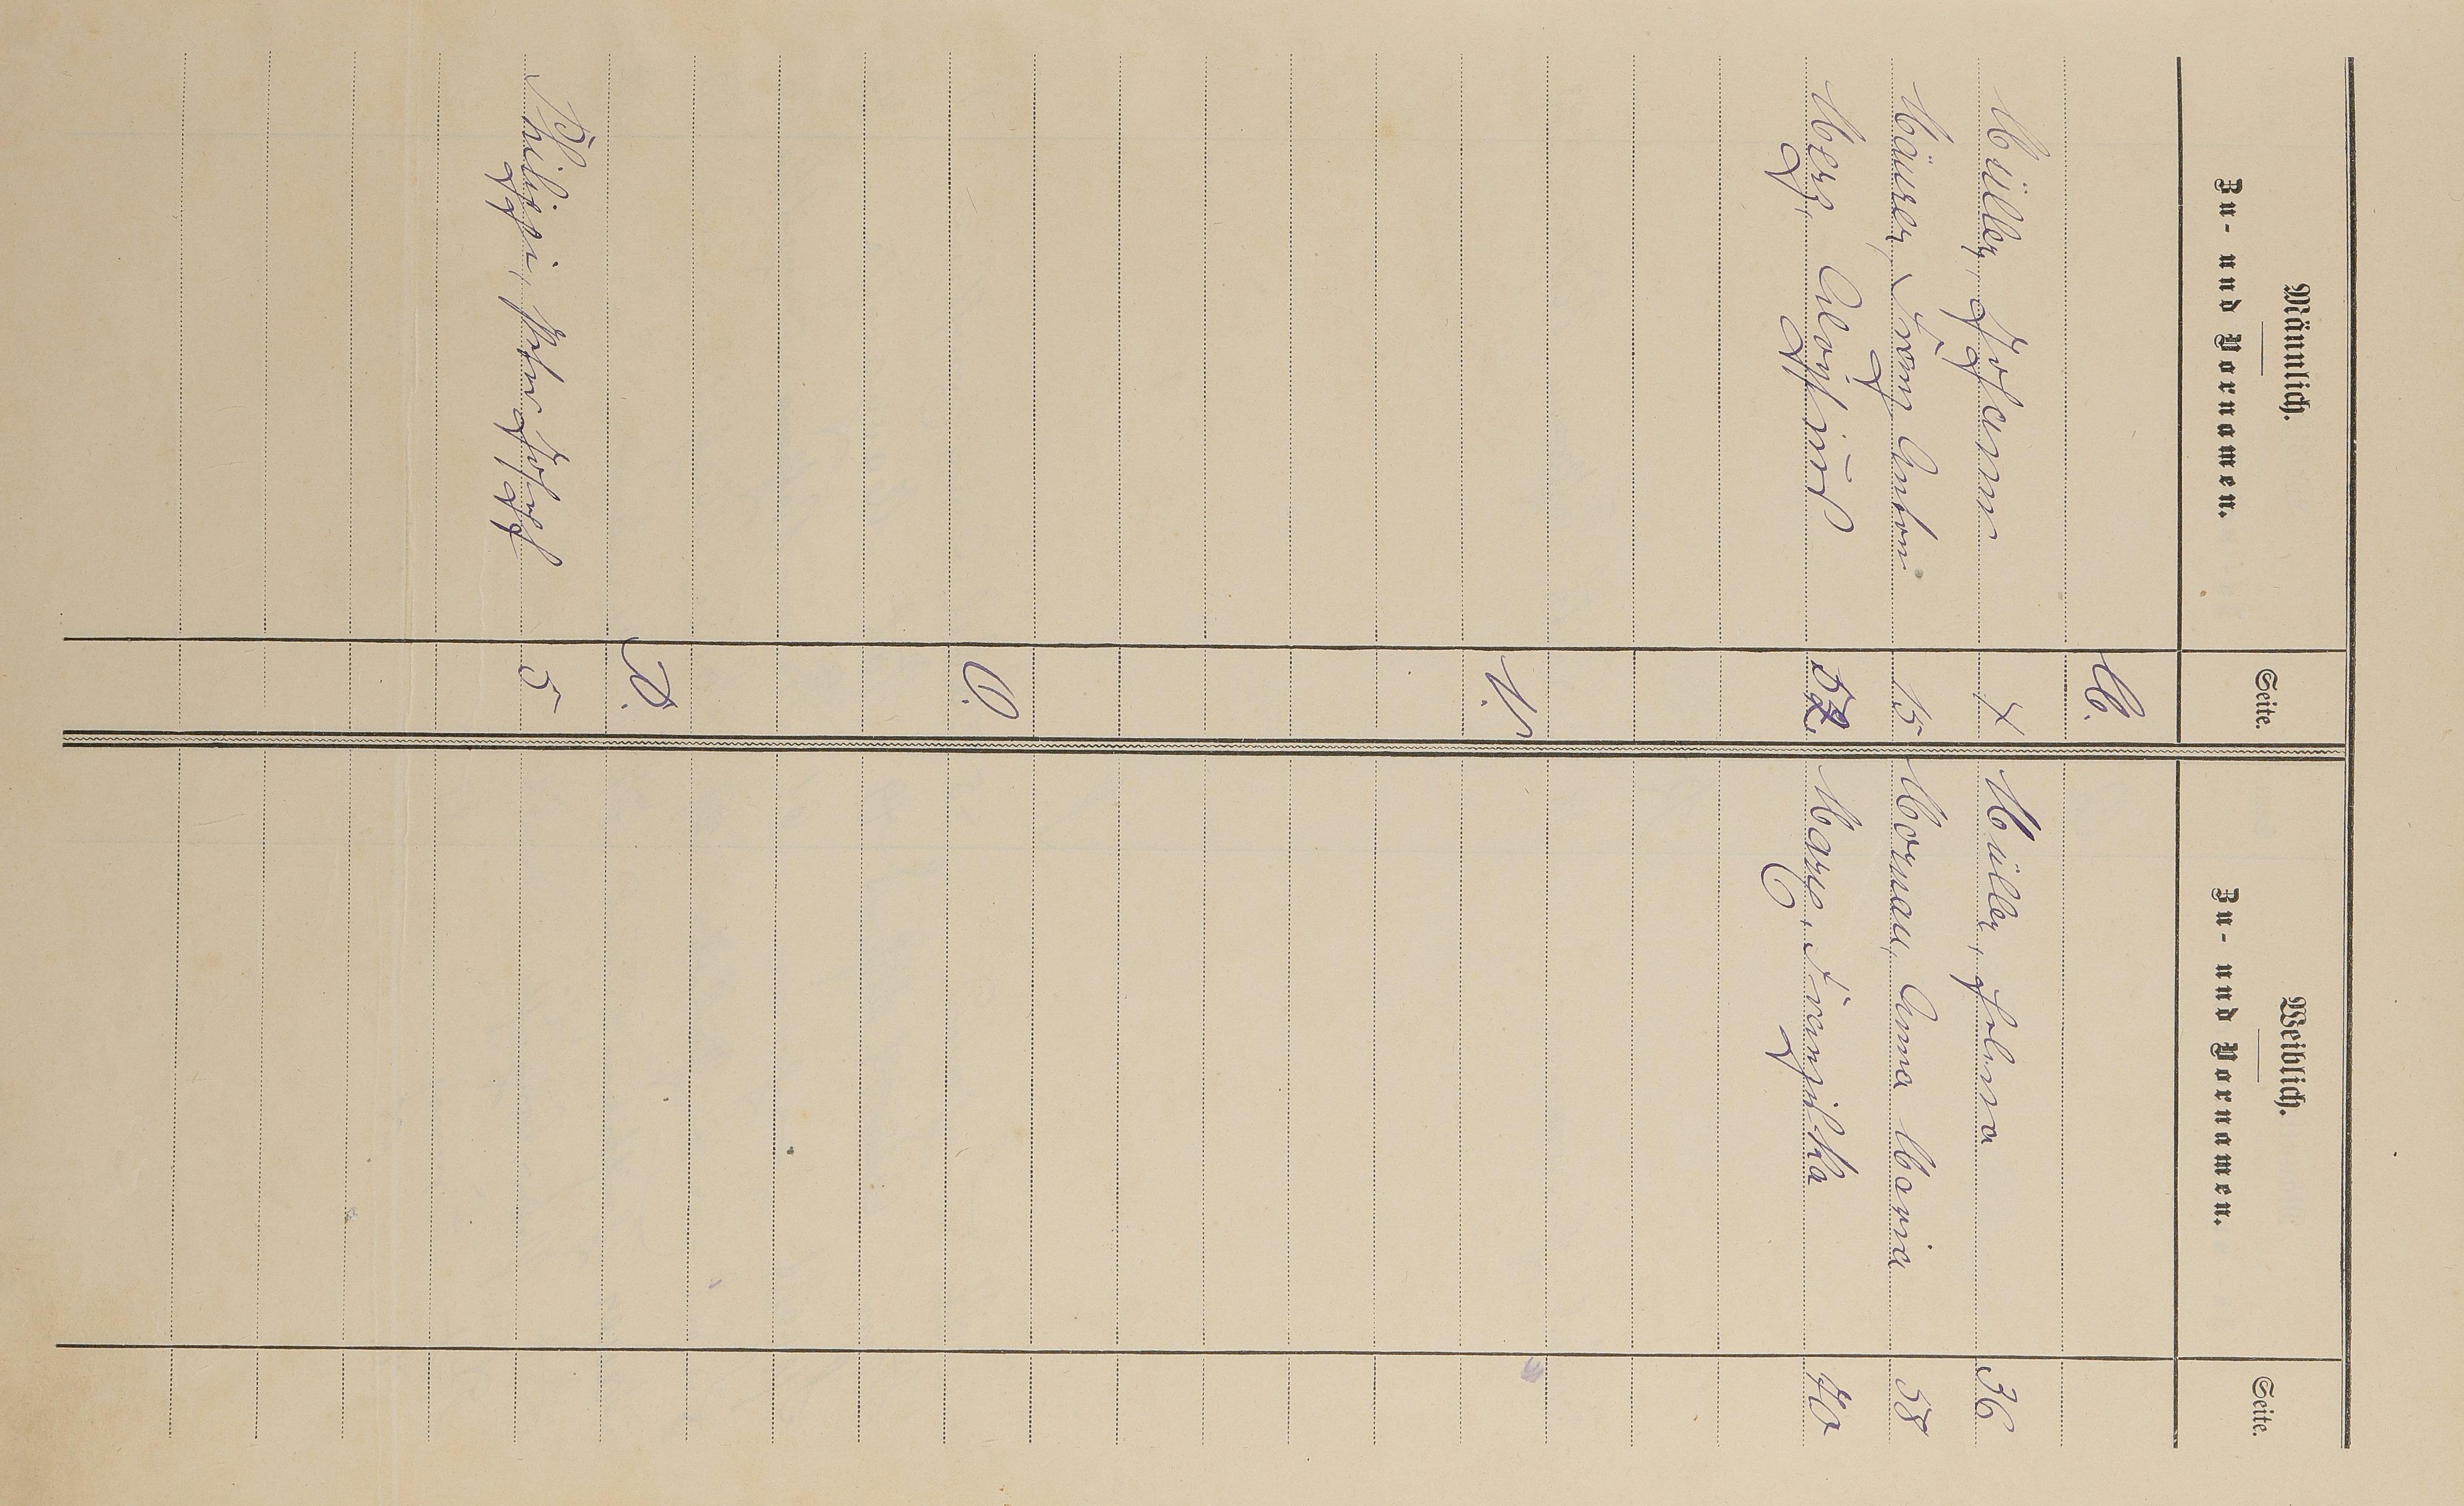 Männlich.
Zu- und Vornamen.
Seite.
Weiblich.
Zu- und Vornamen.
Seite.
M.
Müller, Johann 7 Müller, Helena 36
Mäurer, Franz Anton 15 Mornau, Anna Maria 58
Merz, Aloysius 52. Marx, Franziska 40
N.
O.
P.
Philippi, Peter Joseph 5